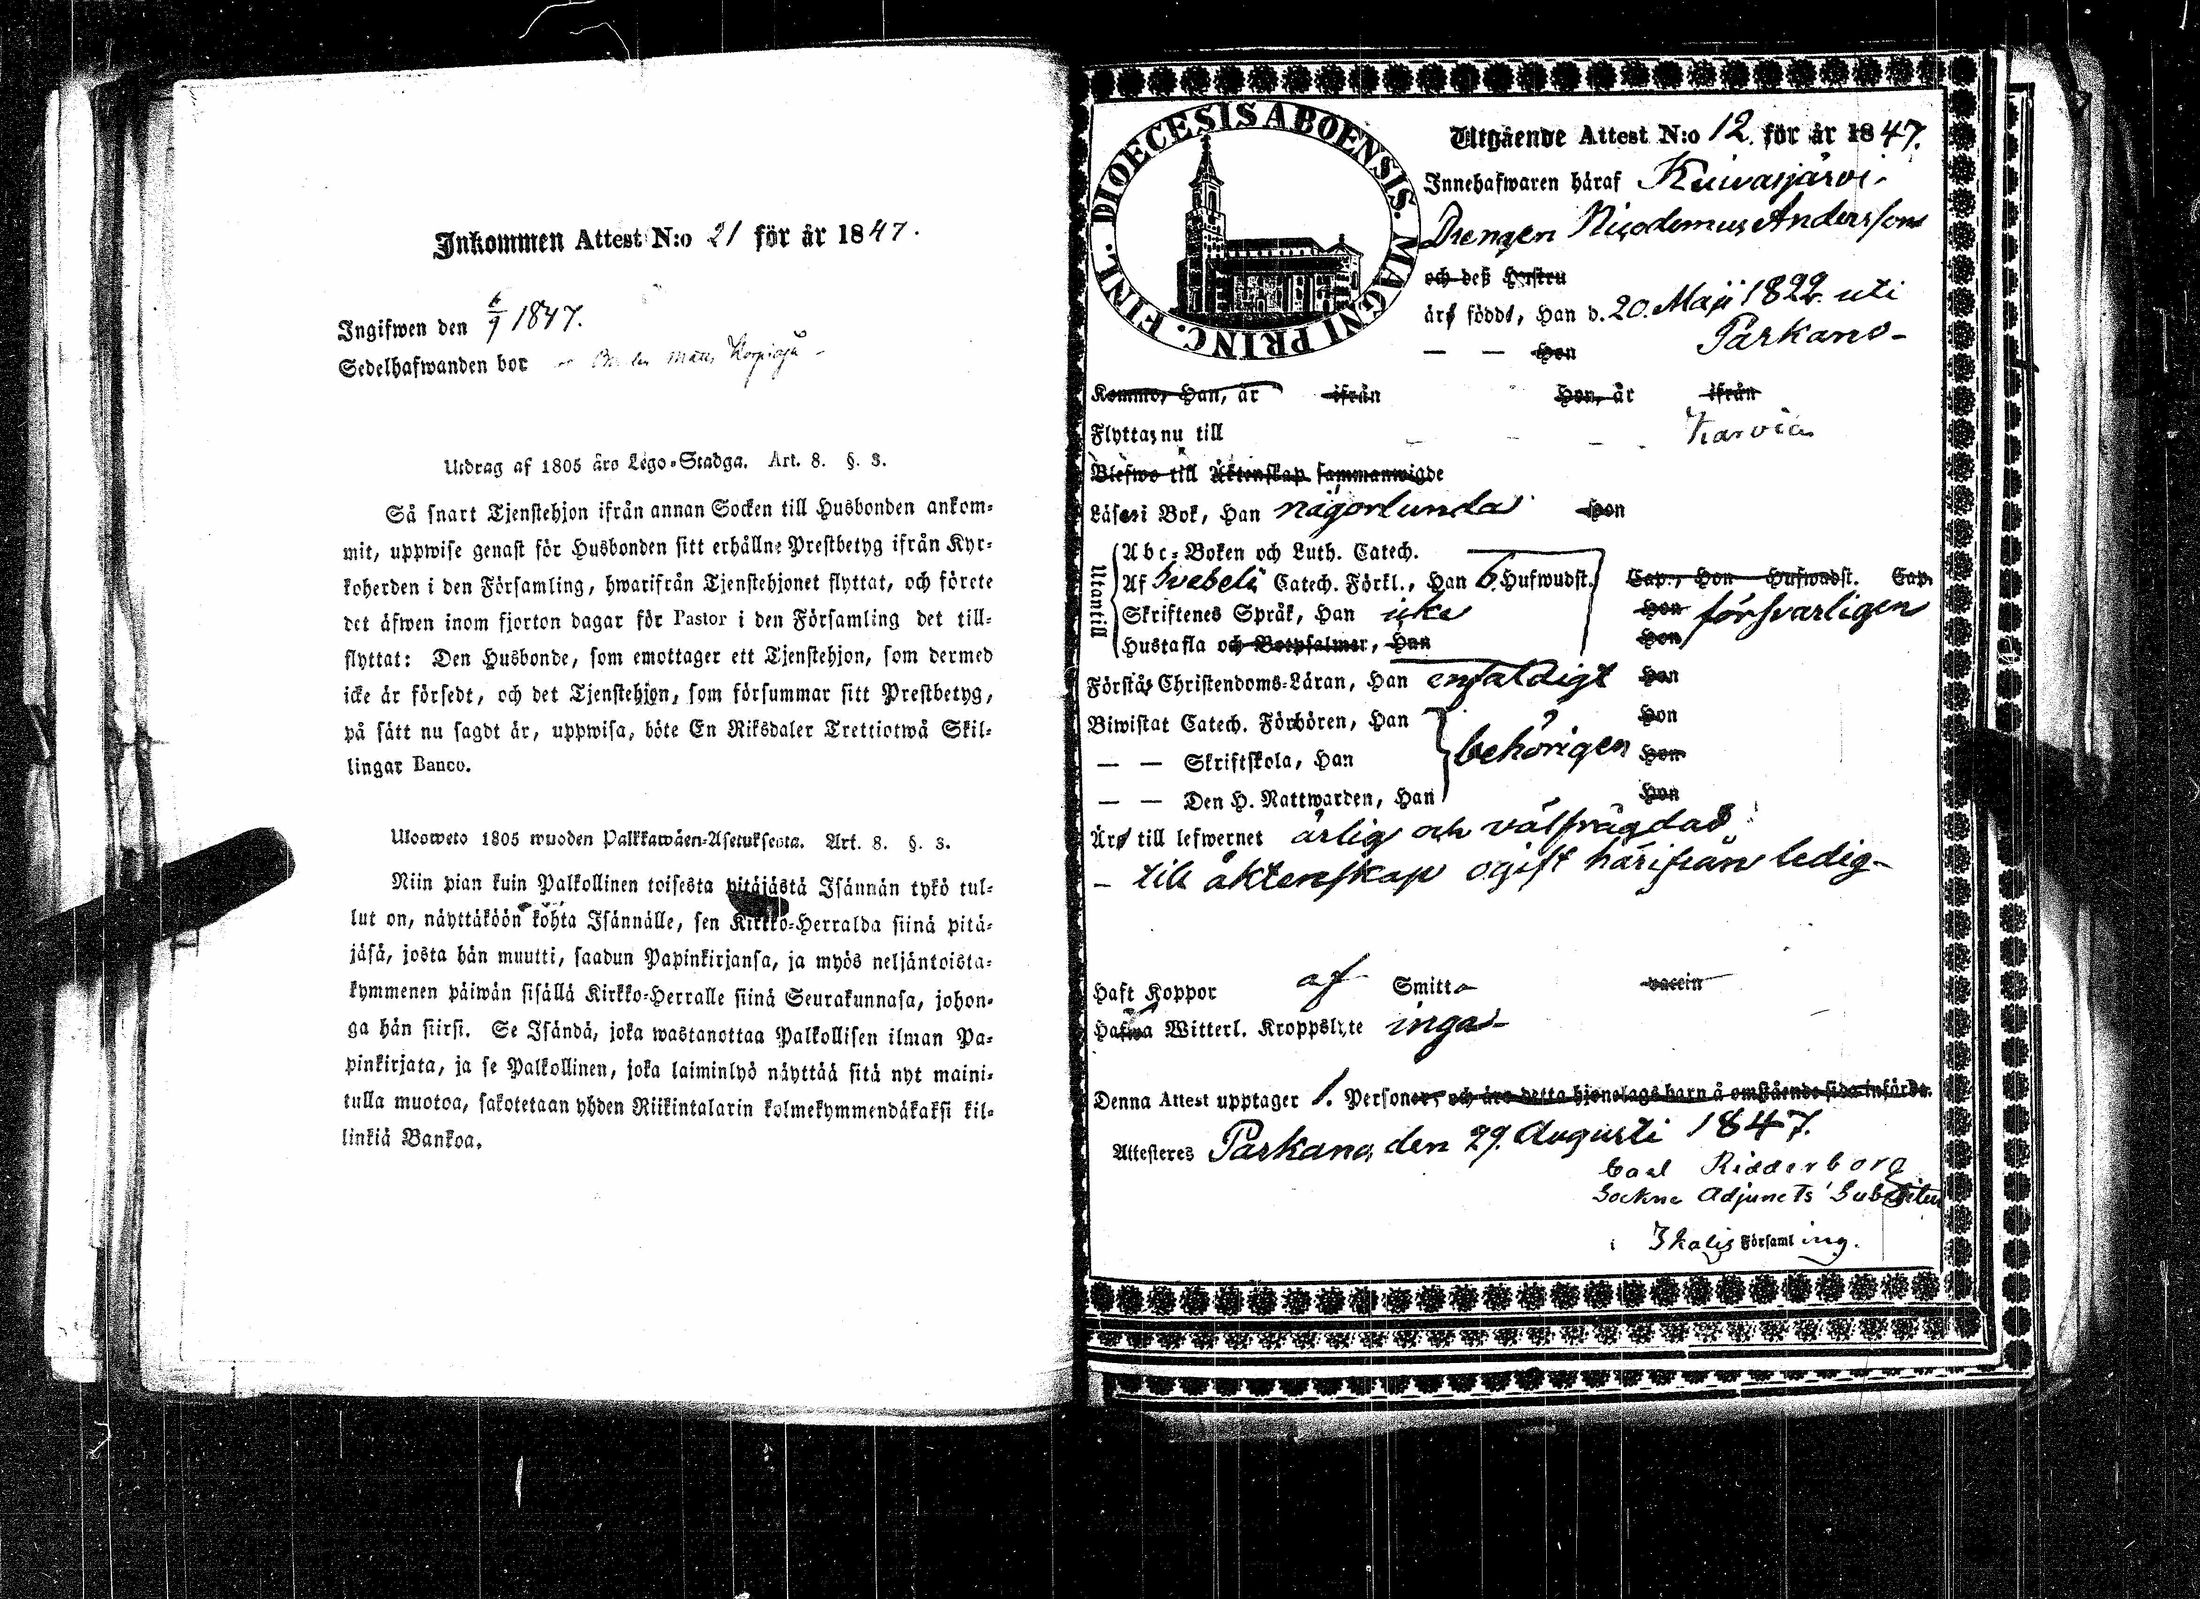 Inkommen Attest N:o 21 för år 1847.
Ingifwen den 6/9 1847.
Sedelhafwanden bor
Utdrag af 1805 års Lego-Stadga. Art. 8. §. 3.
Så snart Tjenstehjon ifrån annan Socken till Husbonden ankom-
mit, uppwise genast för Husbonden sitt erhållne Prestbetyg ifrån Kyr-
koherden i den Församling, hwarifrån Tjenstehjonet flyttat, och förete
det äfwen inom fjorton dagar för Pastor i den Församling det till-
flyttat: Den Husbonde, som emottager ett Tjenstehjon, som dermed
icke är försedt, och det Tjenstehjon, som försummar sitt Prestbetyg,
på sätt nu sagdt är, uppwisa, böte En Riksdaler Trettiotwå Skil-
lingar Banco.
Ulosweto 1805 wuoden Palkkawäen-Asetuksesta. Art. 8. §. 3.
Niin pian kuin Palkollinen toisesta pitäjästä Isännän tykö tul-
lut on, näyttäköön kohta Isännälle, sen Kirkko-Herralda siinä pitä-
jäsä, josta hän muutti, saadun Papinkirjansa, ja myös neljäntoista-
kymmenen päiwän sisällä Kirkko-Herralle siinä Seurakunnasa, johon-
ga hän siirsi. Se Isändä, joka wastanottaa Palkollisen ilman Pa-
pinkirjata, ja se Palkollinen, joka laiminlyö näyttää sitä nyt maini-
tulla muotoa, sakotetaan yhden Riikintalarin kolmekymmendäkaksi kil-
linkiä Bankoa.
DIOECESIS ABOENSIS. MAGNI PRINC. FINL.
Utgående Attest N:o 12. för år 1847.
Innehafwaren häraf Kuivasjärvi
Drengen Nicodemus Andersson
och deß Hustru
äro födde, Han d. 20. Maji 1822. uti
— — Hon Parkano
Komne, Han, år ifrån Hon, år ifrån
Flyttas nu till Karvia
Blefwo till Äktenskap sammanwigde
Läser i Bok, Han någorlunda Hon
Utantill
Abc-Boken och Luth. Catech.
Af Svebelii Catech. Förkl., Han 6. Hufwudst. Cap., Hon Hufwudst. Cap.
Skriftenes Språk, Han icke Hon försvarligen
Hustafla och Botpsalmer, Han Hon
Förstår Christendoms-Läran, Han enfaldigt Hon
Biwistat Catech. Förhören, Han Hon
— — Skriftskola, Han behörigen Hon
— — Den H. Nattwarden, Han Hon
Äro till lefwernet ärlig och välfrägdad
– till äktenskap ogift härifrån ledig
Haft Koppor af Smitta vaccin
Hafwa Witterl. Kroppslyte inga
Denna Attest upptager 1. Personer, och äro detta hjonelags barn å omstående sida införda.
Attesteres Parkano den 29. Augusti 1847.
Carl Ridderborg
Sockne Adjuncts Substitut
i Ikalis Församling.